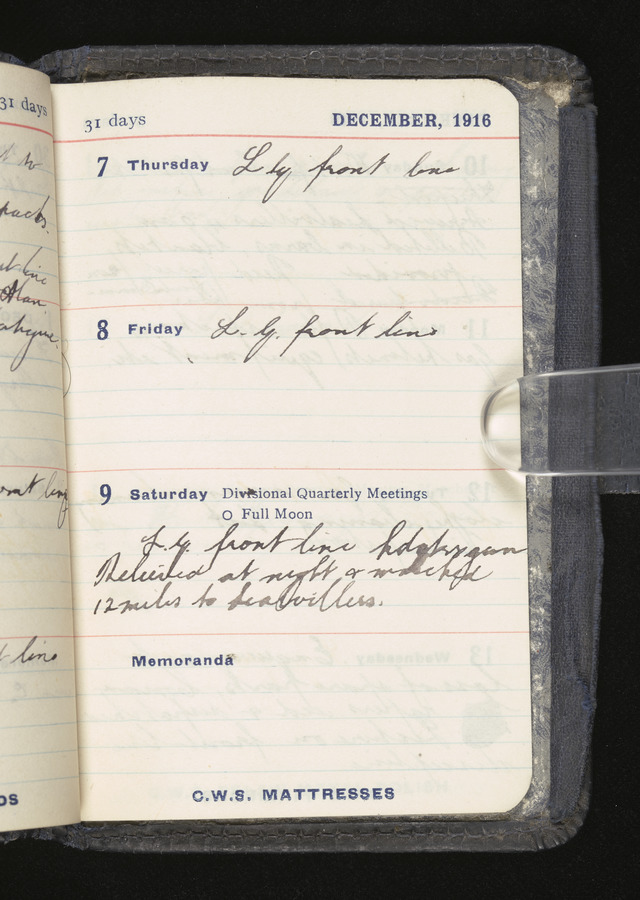 31 days
31 days DECEMBER, 1916
7 Thursday L.g. front line
8 Friday L. G. front line
9 Saturday Divisional Quarterly Meetings
O Full Moon
L.g. front line
Relieved at night & marched
12 miles to Lealvillers.
Memoranda
C.W.S. MATTRESSES
packs.
front line
line
OS